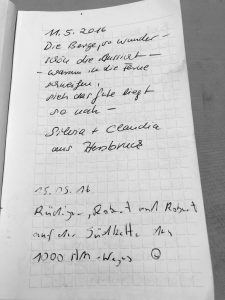 11.5.2016
Die Berge so wunder -
schön die Aussicht -
- warum in die Ferne
schweifen,
sieh das Gute liegt
so nah -
Silvia + Claudia
aus Hersbruck
15.05.16
Rüdiger, Robert und Robert
auf der Südkette
1000 HM -